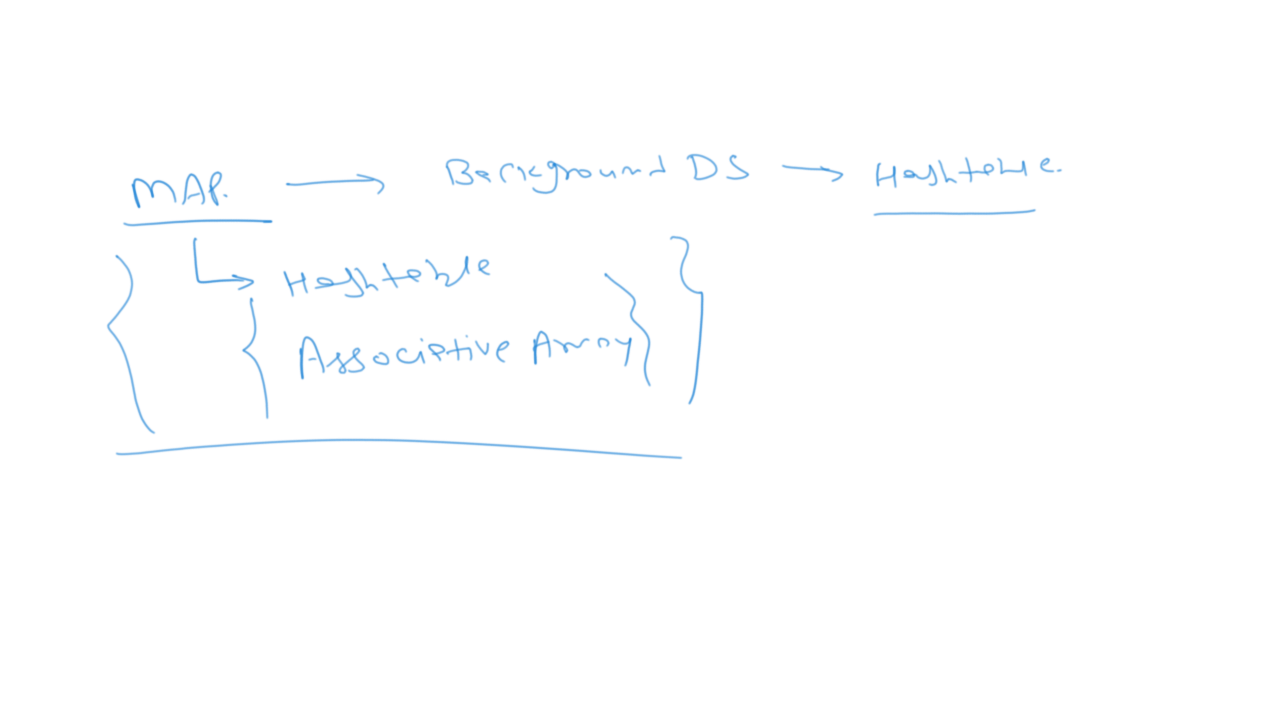 MAP. → Background DS → Hashtable.
Hashtable
Associative Array